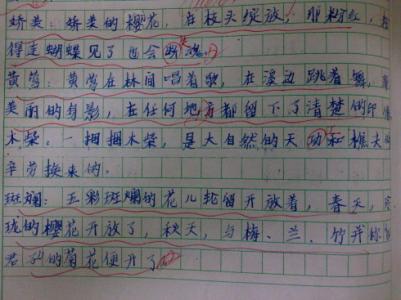 娇美：娇美的樱花，在枝头绽放，那粉红，
得连蝴蝶见了也会断魂。
黄莺：黄莺在林间唱着歌，在溪边跳着舞，
美丽的身影，在任何地方都留下了清楚的印
木柴：一捆捆木柴，是大自然的天功和樵夫的
辛劳换来的。
斑斓：五彩斑斓的花儿轮留开放着，春天，
珑的樱花开放了，秋天，与梅、兰、竹并称
君子的菊花便开了